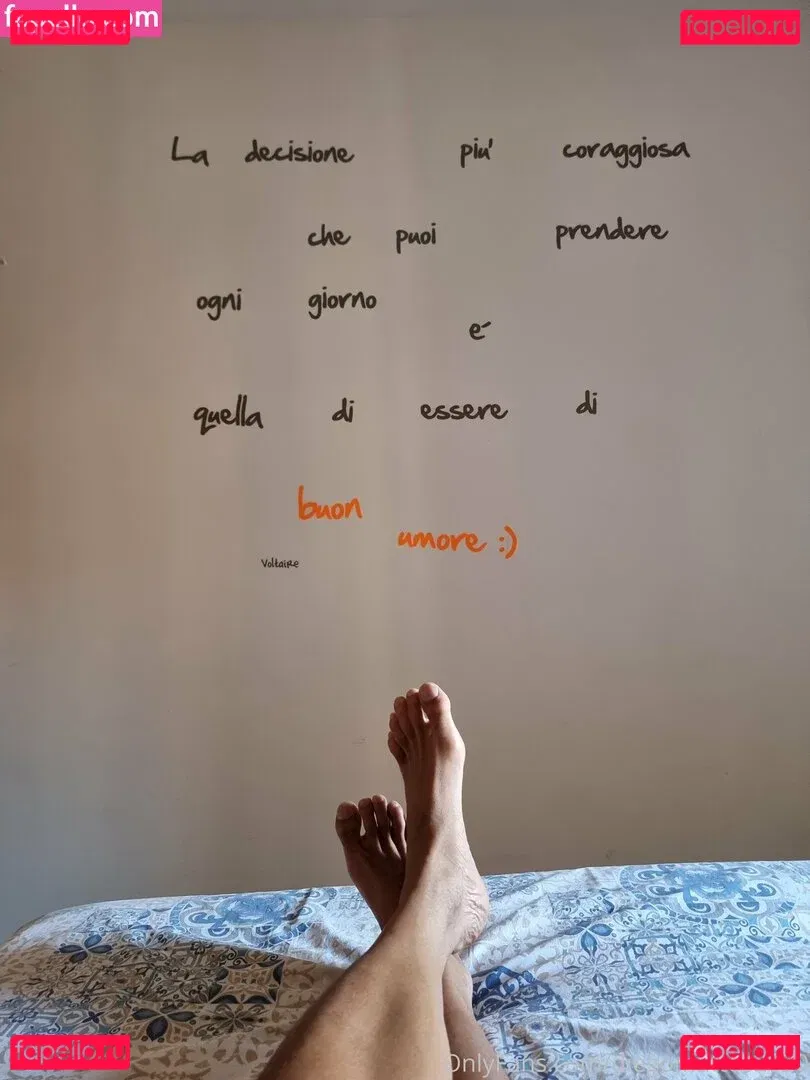 fapello.com
fapello.ru
fapello.ru
La decisione piu' coraggiosa
che puoi prendere
ogni giorno
e'
quella di essere di
buon
umore :)
Voltaire
fapello.ru
fapello.ru